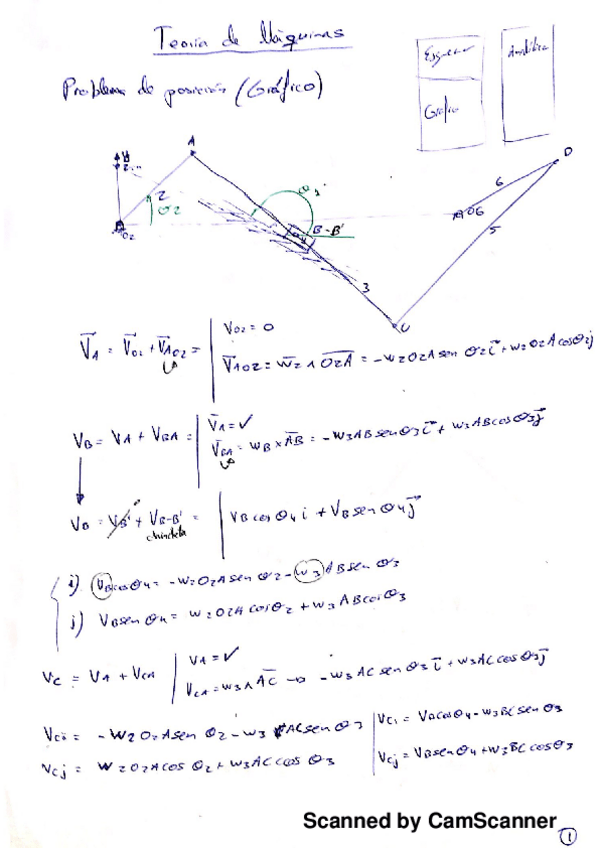 Teoría de Máquinas
Problema de posición (Gráfico)
Esquema
Analítico
Gráfico
A
D
2
θ2
θ3
O2
B-B'
6
O6
5
3
C
V⃗A = V⃗O2 + V⃗AO2 =
VO2 = 0
V⃗AO2 = w⃗2 ∧ O2A = -w2O2A sen θ2 i⃗ + w2O2A cos θ2 j
VB = VA + VBA =
V⃗A = ✓
V⃗BA = wB × AB = -w3 AB sen θ3 i⃗ + w3 AB cos θ3 j⃗
VB = VB' + VB-B' =
VB cos θ4 i + VB sen θ4 j⃗
i) VB cos θ4 = -w2O2A sen θ2 - w3 AB sen θ3
j) VB sen θ4 = w2O2A cos θ2 + w3 AB cos θ3
VC = VA + VCA
VA = ✓
VCA = w3 ∧ AC → -w3 AC sen θ3 i⃗ + w3 AC cos θ3 j⃗
VCi = -w2O2A sen θ2 - w3 AC sen θ3
VCi = VB cos θ4 - w3 BC sen θ3
VCj = w2O2A cos θ2 + w3 AC cos θ3
VCj = VB sen θ4 + w3 BC cos θ3
Scanned by CamScanner
1